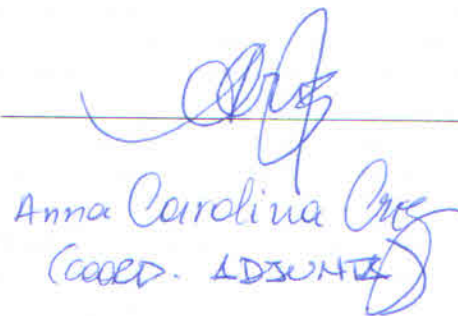 Anna Carolina Cruz
(COORD. ADJUNTA)